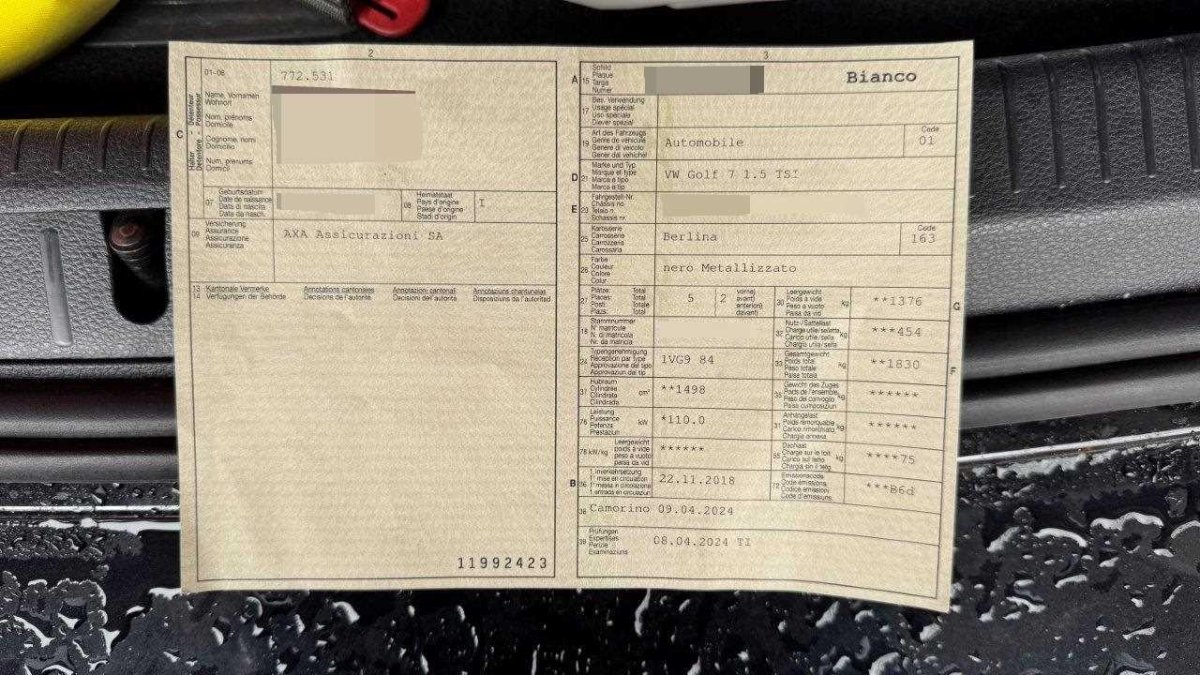 2
01-06
772.531
C
Halter - Détenteur
Detentore - Possessur
Name, Vornamen
Wohnort
Nom, prénoms
Domicile
Cognome, nomi
Domicilio
Num, prenums
Domicil
07
Geburtsdatum
Date de naissance
Data di nascita
Data da nasch.
08
Heimatstaat
Pays d'origine
Paese d'origine
Stadi d'origin
I
09
Versicherung
Assurance
Assicurazione
Assicuranza
AXA Assicurazioni SA
13
14
Kantonale Vermerke
Verfügungen der Behörde
Annotations cantonales
Décisions de l'autorité
Annotazioni cantonali
Decisioni dell'autorità
Annotaziuns chantunalas
Disposiziuns da l'autoritad
11992423
3
A
15
Schild
Plaque
Targa
Numer
Bianco
17
Bes. Verwendung
Usage spécial
Uso speciale
Diever spezial
19
Art des Fahrzeugs
Genre de véhicule
Genere di veicolo
Gener dal vehichel
Automobile
Code
01
D
21
Marke und Typ
Marque et type
Marca e tipo
Marca e tip
VW Golf 7 1.5 TSI
E
23
Fahrgestell-Nr.
Châssis no
Telaio n.
Schassis nr.
25
Karosserie
Carrosserie
Carrozzeria
Carossaria
Berlina
Code
163
26
Farbe
Couleur
Colore
Color
nero Metallizzato
27
Plätze: Total
Places: Total
Posti: Totale
Plazs: Total
5
2
vorne)
avant)
anteriori)
davant)
30
Leergewicht
Poids à vide
Peso a vuoto
Paisa da vid
kg
**1376
G
18
Stammnummer
N° matricule
N. di matricola
Nr. da matricla
32
Nutz-/Sattellast
Charge utile/sellette
Carico utile/sella
Chargia utila/sella
kg
***454
24
Typengenehmigung
Réception par type
Approvazione del tipo
Approvaziun dal tip
1VG9 84
33
Gesamtgewicht
Poids total
Peso totale
Paisa totala
kg
**1830
F
37
Hubraum
Cylindrée
Cilindrata
Cilindrada
cm³
**1498
35
Gewicht des Zuges
Poids de l'ensemble
Peso del convoglio
Paisa cumposiziun
kg
******
76
Leistung
Puissance
Potenza
Prestaziun
kW
*110.0
31
Anhängelast
Poids remorquable
Carico rimorchiato
Chargia annexa
kg
******
78 kW/kg
Leergewicht
poids à vide
peso a vuoto
paisa da vid
******
55
Dachlast
Charge sur le toit
Carico sul tetto
Chargia sin il tetg
kg
****75
B
36
1. Inverkehrsetzung
1re mise en circulation
1a messa in circolazione
1. entrada en circulaziun
22.11.2018
72
Emissionscode
Code émissions
Codice emissioni
Code d'emissiuns
***B6d
38
Camorino 09.04.2024
39
Prüfungen
Expertises
Perizie
Examinaziuns
08.04.2024 TI